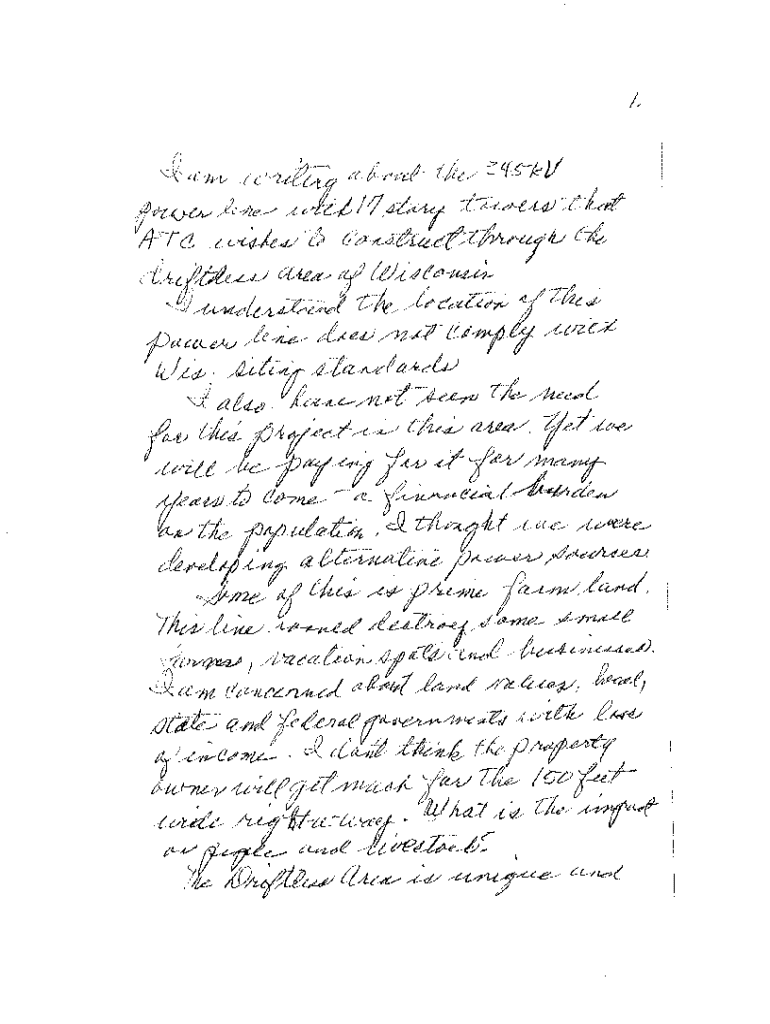 1.
I am writing about the 345kV
power line with 17 story towers that
ATC wishes to construct through the
driftless area of Wisconsin
I understand the location of this
power line does not comply with
Wis. siting standards
I also have not seen the need
for this project in this area. Yet we
will be paying for it for many
years to come - a financial burden
on the population. I thought we were
developing alternative power sources.
Some of this is prime farm land.
This line would destroy some small
farms, vacation spots and businesses.
I am concerned about land values, local,
state and federal governments with loss
of income. I don't think the property
owner will get much for the 150 feet
wide right-a-way. What is the impact
on people and livestock?
The Driftless Area is unique and